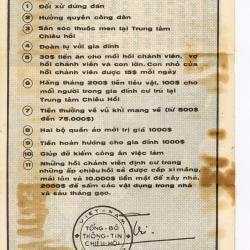 1 Đối xử đứng đắn
2 Hưởng quyền công dân
3 Săn sóc thuốc men tại Trung tâm
Chiêu hồi
4 Đoàn tụ với gia đình
5 30$ tiền ăn cho mỗi hồi chánh viên, vợ
hồi chánh viên và con lớn. Con nhỏ của
hồi chánh viên được 15$ mỗi ngày
6 Hàng tháng 200$ tiền tiêu vặt, 100$ cho
mỗi người trong gia đình cư trú tại
Trung tâm Chiêu Hồi
7 Tiền thưởng về vũ khí mang về (từ 500$
đến 75.000$)
8 Hai bộ quần áo mới trị giá 1000$
9 Tiền hoàn hương cho gia đình 1000$
10 Giúp đỡ kiếm công ăn việc làm
11 Những hồi chánh viên định cư trong
những ấp chiêu hồi sẽ được cấp xi măng,
mái tôn và 10.000$ tiền mặt để xây nhà
2000$ để sắm các vật dụng trong nhà
và sáu tháng gạo.
VIỆT-NAM
TỔNG-BỘ
THÔNG-TIN
CHIÊU-HỒI